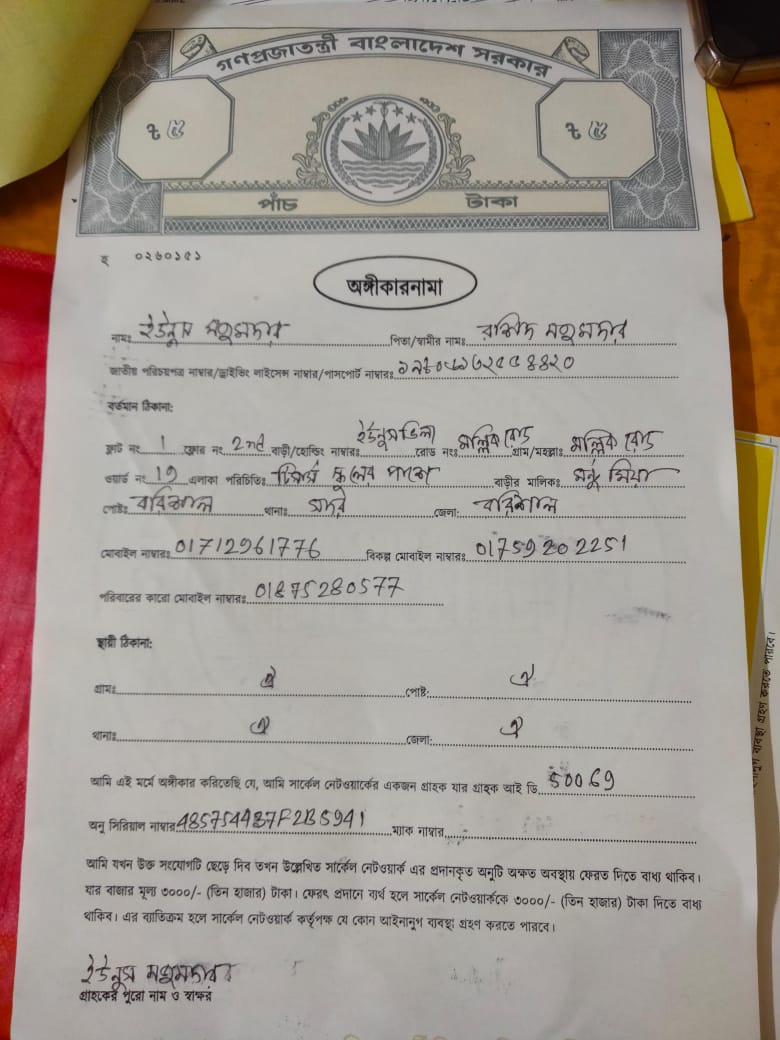 গণপ্রজাতন্ত্রী বাংলাদেশ সরকার
৳ ৫ ৳ ৫
পাঁচ টাকা
হ ০২৬০১৫১
অঙ্গীকারনামা
নামঃ ইউনুস মজুমদার পিতা/স্বামীর নামঃ রশিদ মজুমদার
জাতীয় পরিচয়পত্র নাম্বার/ড্রাইভিং লাইসেন্স নাম্বার/পাসপোর্ট নাম্বারঃ
বর্তমান ঠিকানা:
ফ্লাট নং 1 ফ্লোর নং 2nd বাড়ী/হোল্ডিং নাম্বারঃ ইউনুস ভিলা রোড নংঃ মল্লিক রোড গ্রাম/মহল্লাঃ মল্লিক রোড
ওয়ার্ড নং 19 এলাকা পরিচিতিঃ স্কুলের পাশে বাড়ীর মালিকঃ মিয়া
পোষ্টঃ বরিশাল থানাঃ সদর জেলা: বরিশাল
মোবাইল নাম্বারঃ 01712961776 বিকল্প মোবাইল নাম্বারঃ 01759202251
পরিবারের কারো মোবাইল নাম্বারঃ 01875280577
স্থায়ী ঠিকানা:
গ্রামঃ ঐ পোষ্ট: ঐ
থানাঃ ঐ জেলা: ঐ
আমি এই মর্মে অঙ্গীকার করিতেছি যে, আমি সার্কেল নেটওয়ার্কের একজন গ্রাহক যার গ্রাহক আই ডি 50069
অনু সিরিয়াল নাম্বারঃ 485754437F2B5941 ম্যাক নাম্বার
আমি যখন উক্ত সংযোগটি ছেড়ে দিব তখন উল্লেখিত সার্কেল নেটওয়ার্ক এর প্রদানকৃত অনুটি অক্ষত অবস্থায় ফেরত দিতে বাধ্য থাকিব।
যার বাজার মূল্য ৩০০০/- (তিন হাজার) টাকা। ফেরৎ প্রদানে ব্যর্থ হলে সার্কেল নেটওয়ার্ককে ৩০০০/- (তিন হাজার) টাকা দিতে বাধ্য
থাকিব। এর ব্যাতিক্রম হলে সার্কেল নেটওয়ার্ক কর্তৃপক্ষ যে কোন আইনানুগ ব্যবস্থা গ্রহণ করতে পারবে।
ইউনুস মজুমদার
গ্রাহকের পুরো নাম ও স্বাক্ষর
ব্যবস্থা গ্রহণ করতে পারবে।